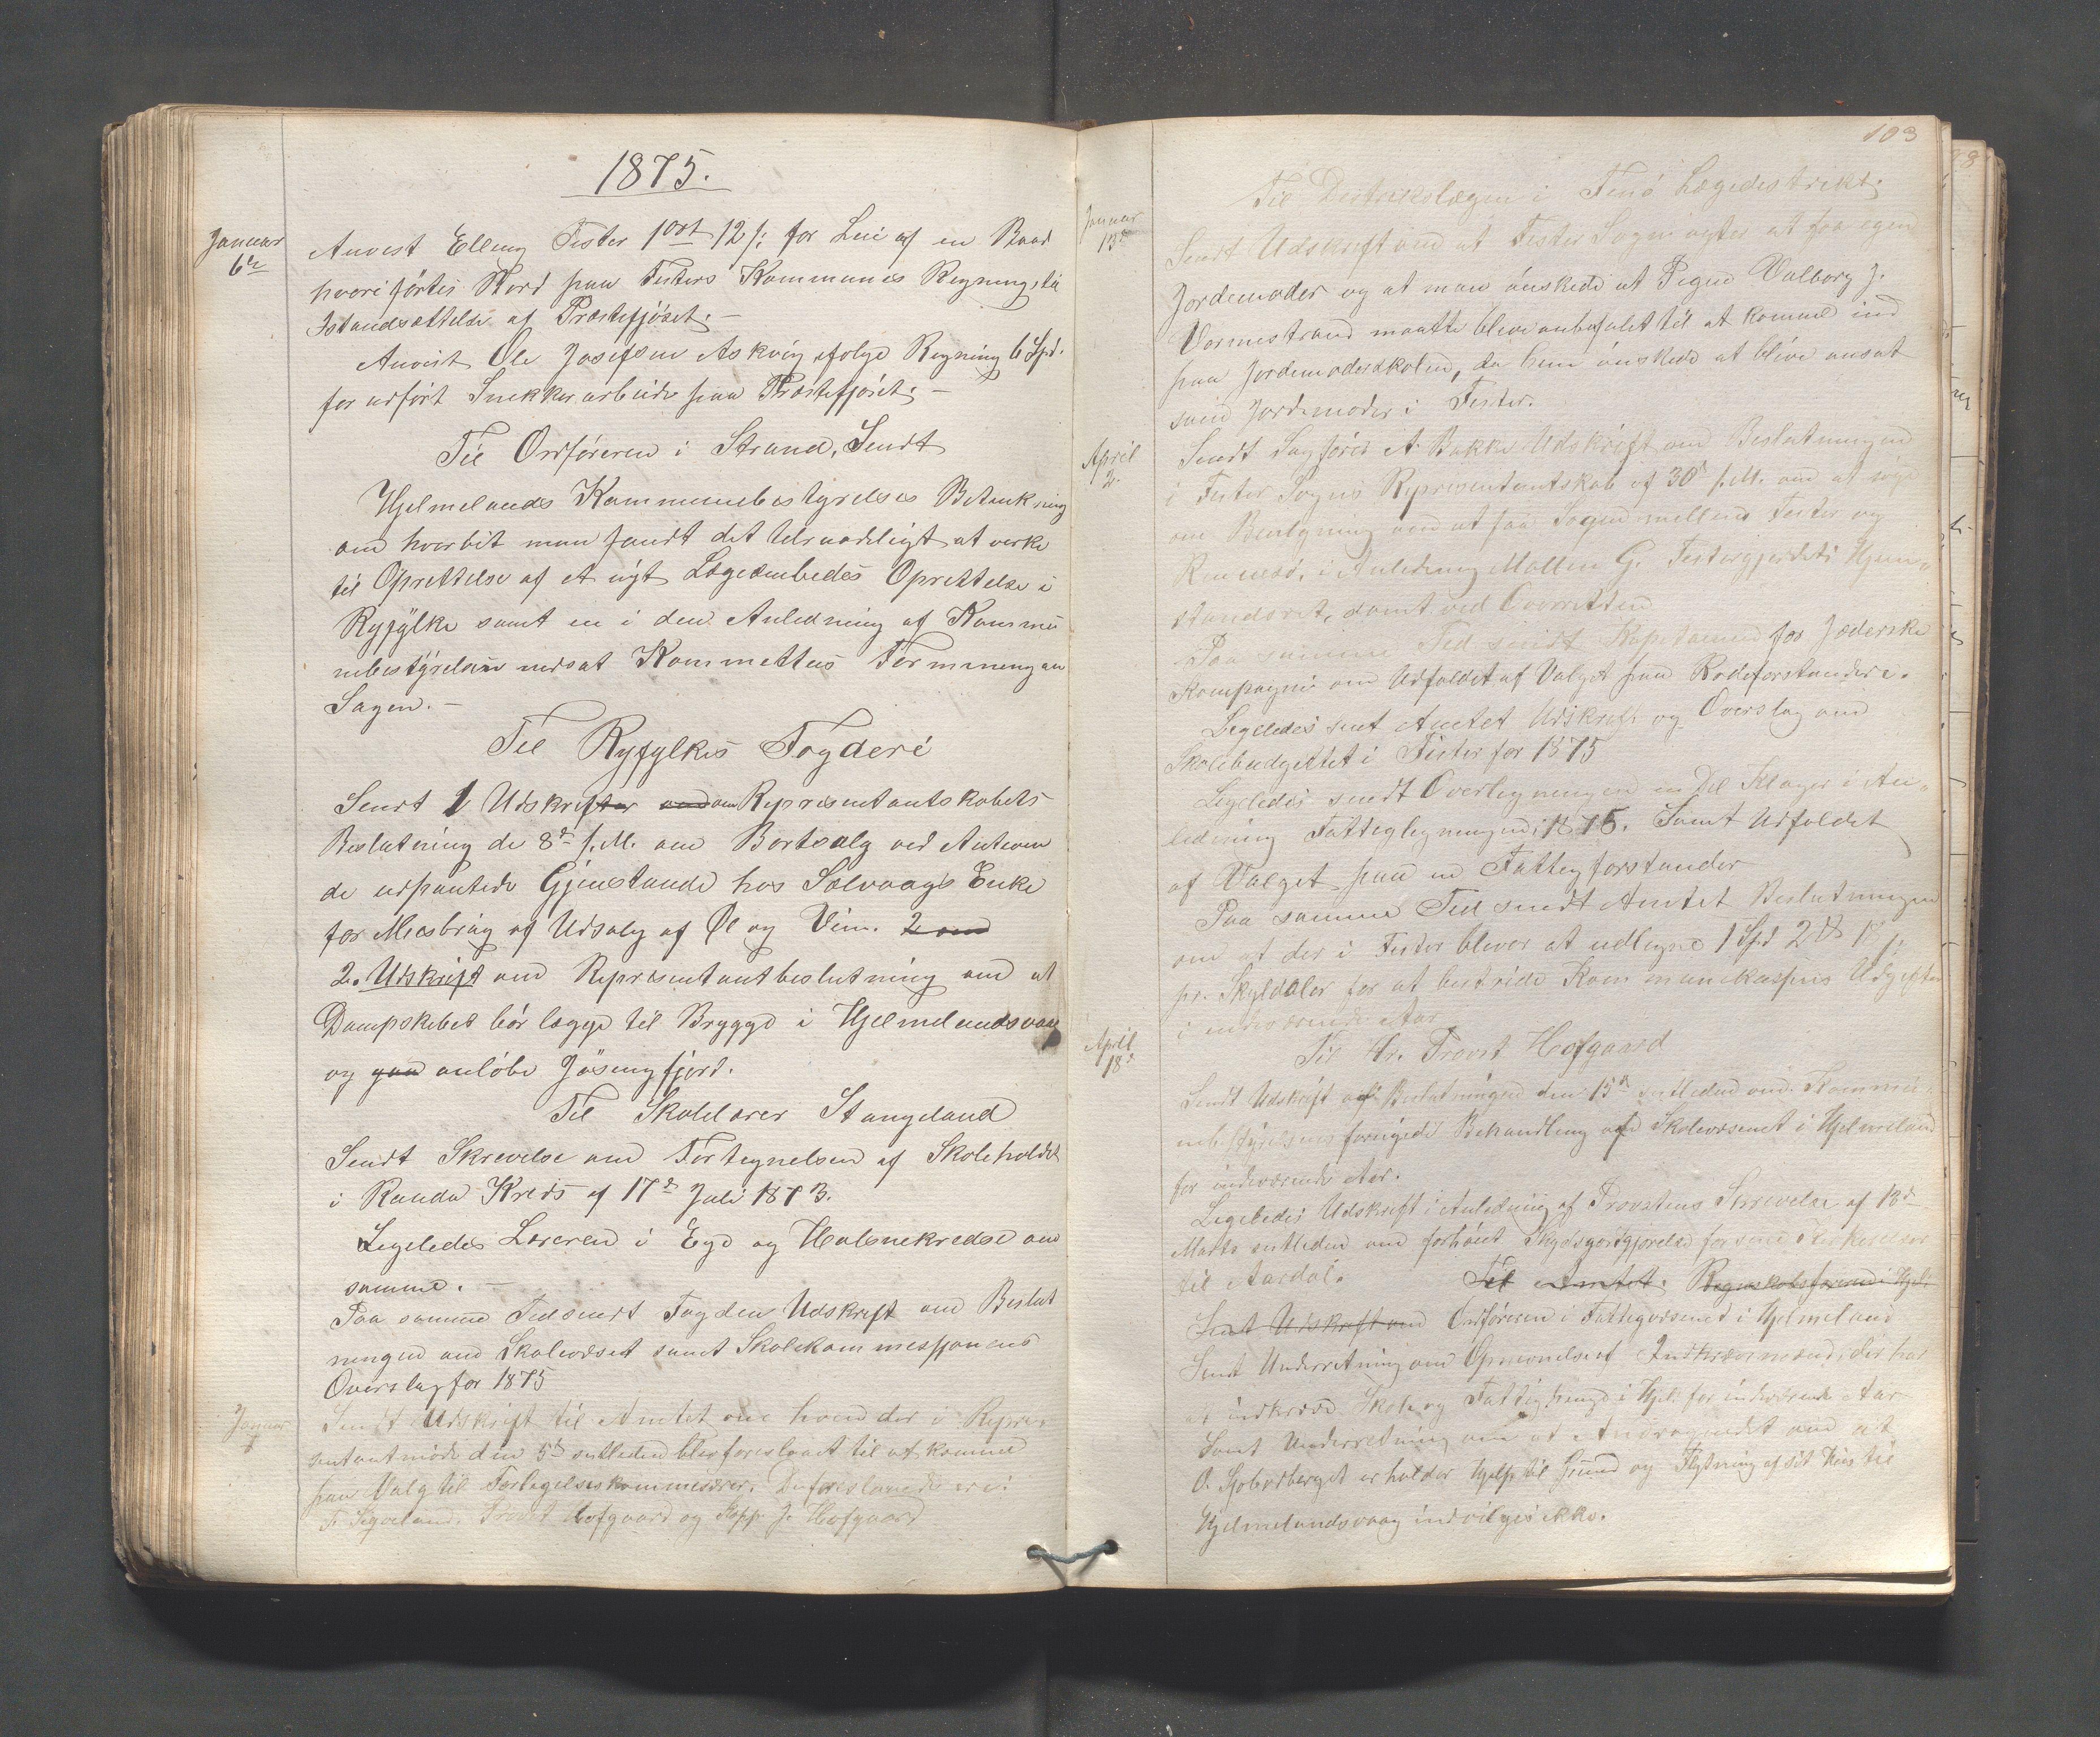 1875.
Januar
6te
Anvist Elling Fister 1 ort 12 s: for Leie af en Baad
hvori förtes Stord paa Fisters Kommunes Regning, til
Istandsættelse af Præstefjöset. –
Anvist Ole Josefsen Askvig ifölge Regning 6 Spd.
for udfört Snekkerarbeide paa Præstefjöset. –
Til Ordföreren i Strand, Sendt
Hjelmelands Kommunebestyrelses Betænkning
om hvorvit man fandt det tilraadeligt at verke
til Oprettelse af et nyt Lægeembedes Oprettelse i
Ryfylke samt en i den Anledning af Kommu
nebestyrelsen nedsat Kommettes Formening an
Sagen. –
Til Ryfylkes Fogderi
Sendt 1 Udskrifter om om Representantskabets
Beslutning de 8de f. M. om Bortsalg ved Auktion
de udpantede Gjenstande hos Solvaags Enke
for Misbrug af Udsalg af Øl og Vin. 2 om
2. Udskrift om Representantbeslutning om at
Dampskibet bör lægge til Brygge i Hjelmelandsvaag
og gaa anlöbe Jösengfjord.
Til Skolelærer Stangeland
Sendt Skrevelse om Fortegnelsen af Skoleholdet
i Randø Kreds af 17de Juli 1873.
Legeledes Læreren i Eye og Halsnekredse om
samme. –
Paa samme Tid sendt Fogden Udskrift om Beslut
ningen om Skolevæset samt Skolekommessjonens
Overslag for 1875
Januar
Sendt Udskrift til Amtet om hvem der i Repre-
sentantmöde den 5te sidstleden blev foreslaaet til at komme
paa Valg til Forlegelseskommisærer. De foreslaaede ere:
T. Segeland. Provst Hofgaard og Kapp. J. Hofgaard
103
Januar
13de
Til Destrikslægen i Finö Lægedestrikt.
Sendt Udskrift om at Fister Sogn agter at faa egen
Jordemoder og at man önskede at Pigen Valborg J.
Vormestrand maatte blive anbefalet til at komme ind
paa Jordemoderskolen, da hun önskede at blive ansat
som Jordemoder i Fister.
April
2.
Sendt Sagförer A. Bakke Udskrift om Beslutningen
i Fister Sogns Representantskab af 30te f. M. om at söge
om Bevilgning om at faa Sagen mellem Fister og
Rennesö, i Anledning Mallene G. Festergjerdets Hjem-
stavnsret, samt ved Overretten
Paa samme Tid sendt Kapteinen for Jæderske
Kompagni om Udfaldet af Valget paa Rodeforstandere.
Legeledes sent Amtet Udskrift og Overslag om
Skolebudgettet i Fister for 1875
Legeledes sendt Overlegningen en Del Klager i An-
ledning Fattiglegningen i 1875. Samt Udfaldet
af Valget paa en Fattigforstander
Paa samme Tid sendt Amtet Beslutningen
om at der i Fister blever at udligne 1 Spd 2
pr. Skyldaler for at bestride Kommunekassens Udgifter
i indeværende Aar
April
18de
Til Hr. Provst Hofgaard
Sendt Udskrift af Beslutningen den 15de sidstleden om Kommu
nebestyrelsens foregede Behandling af Skolevæsenet i Hjelmeland
for indeværende Aar.
Legeledes Udskrift i Anledning af Provstens Skrevelse af 18de
Marts sidstleden om forhöiet Skydsgodtgjörelse for sine Kirkereiser
til Aardal. Til Amtet. Regnskabsföreren i Hjel:
Sent Udskrift om Ordföreren i Fattigvæsenet i Hjelmeland
Sendt Underretning om Opnevnelse af Indkrævermænd, der har
at indkræve Skole og Fattigpenge i Hjel. for indeværende Aar
Samt Underretning om at Andragendet om at
O. Sjobødberget erholder Hjelp til Grund og Flytning af sit Hus til
Hjelmelandsvaag indvilges ikke.